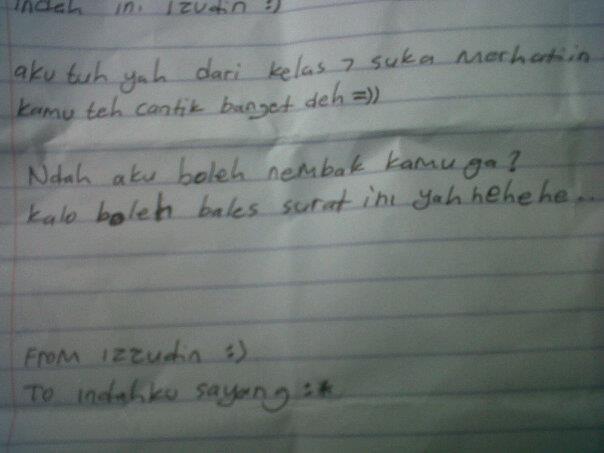 indah ini izudin :)
aku tuh yah dari kelas 7 suka merhatiin
kamu teh cantik banget deh =))
Ndah aku boleh nembak kamu ga?
kalo boleh bales surat ini yah hehehe..
From izzudin :)
To indahku sayang :*